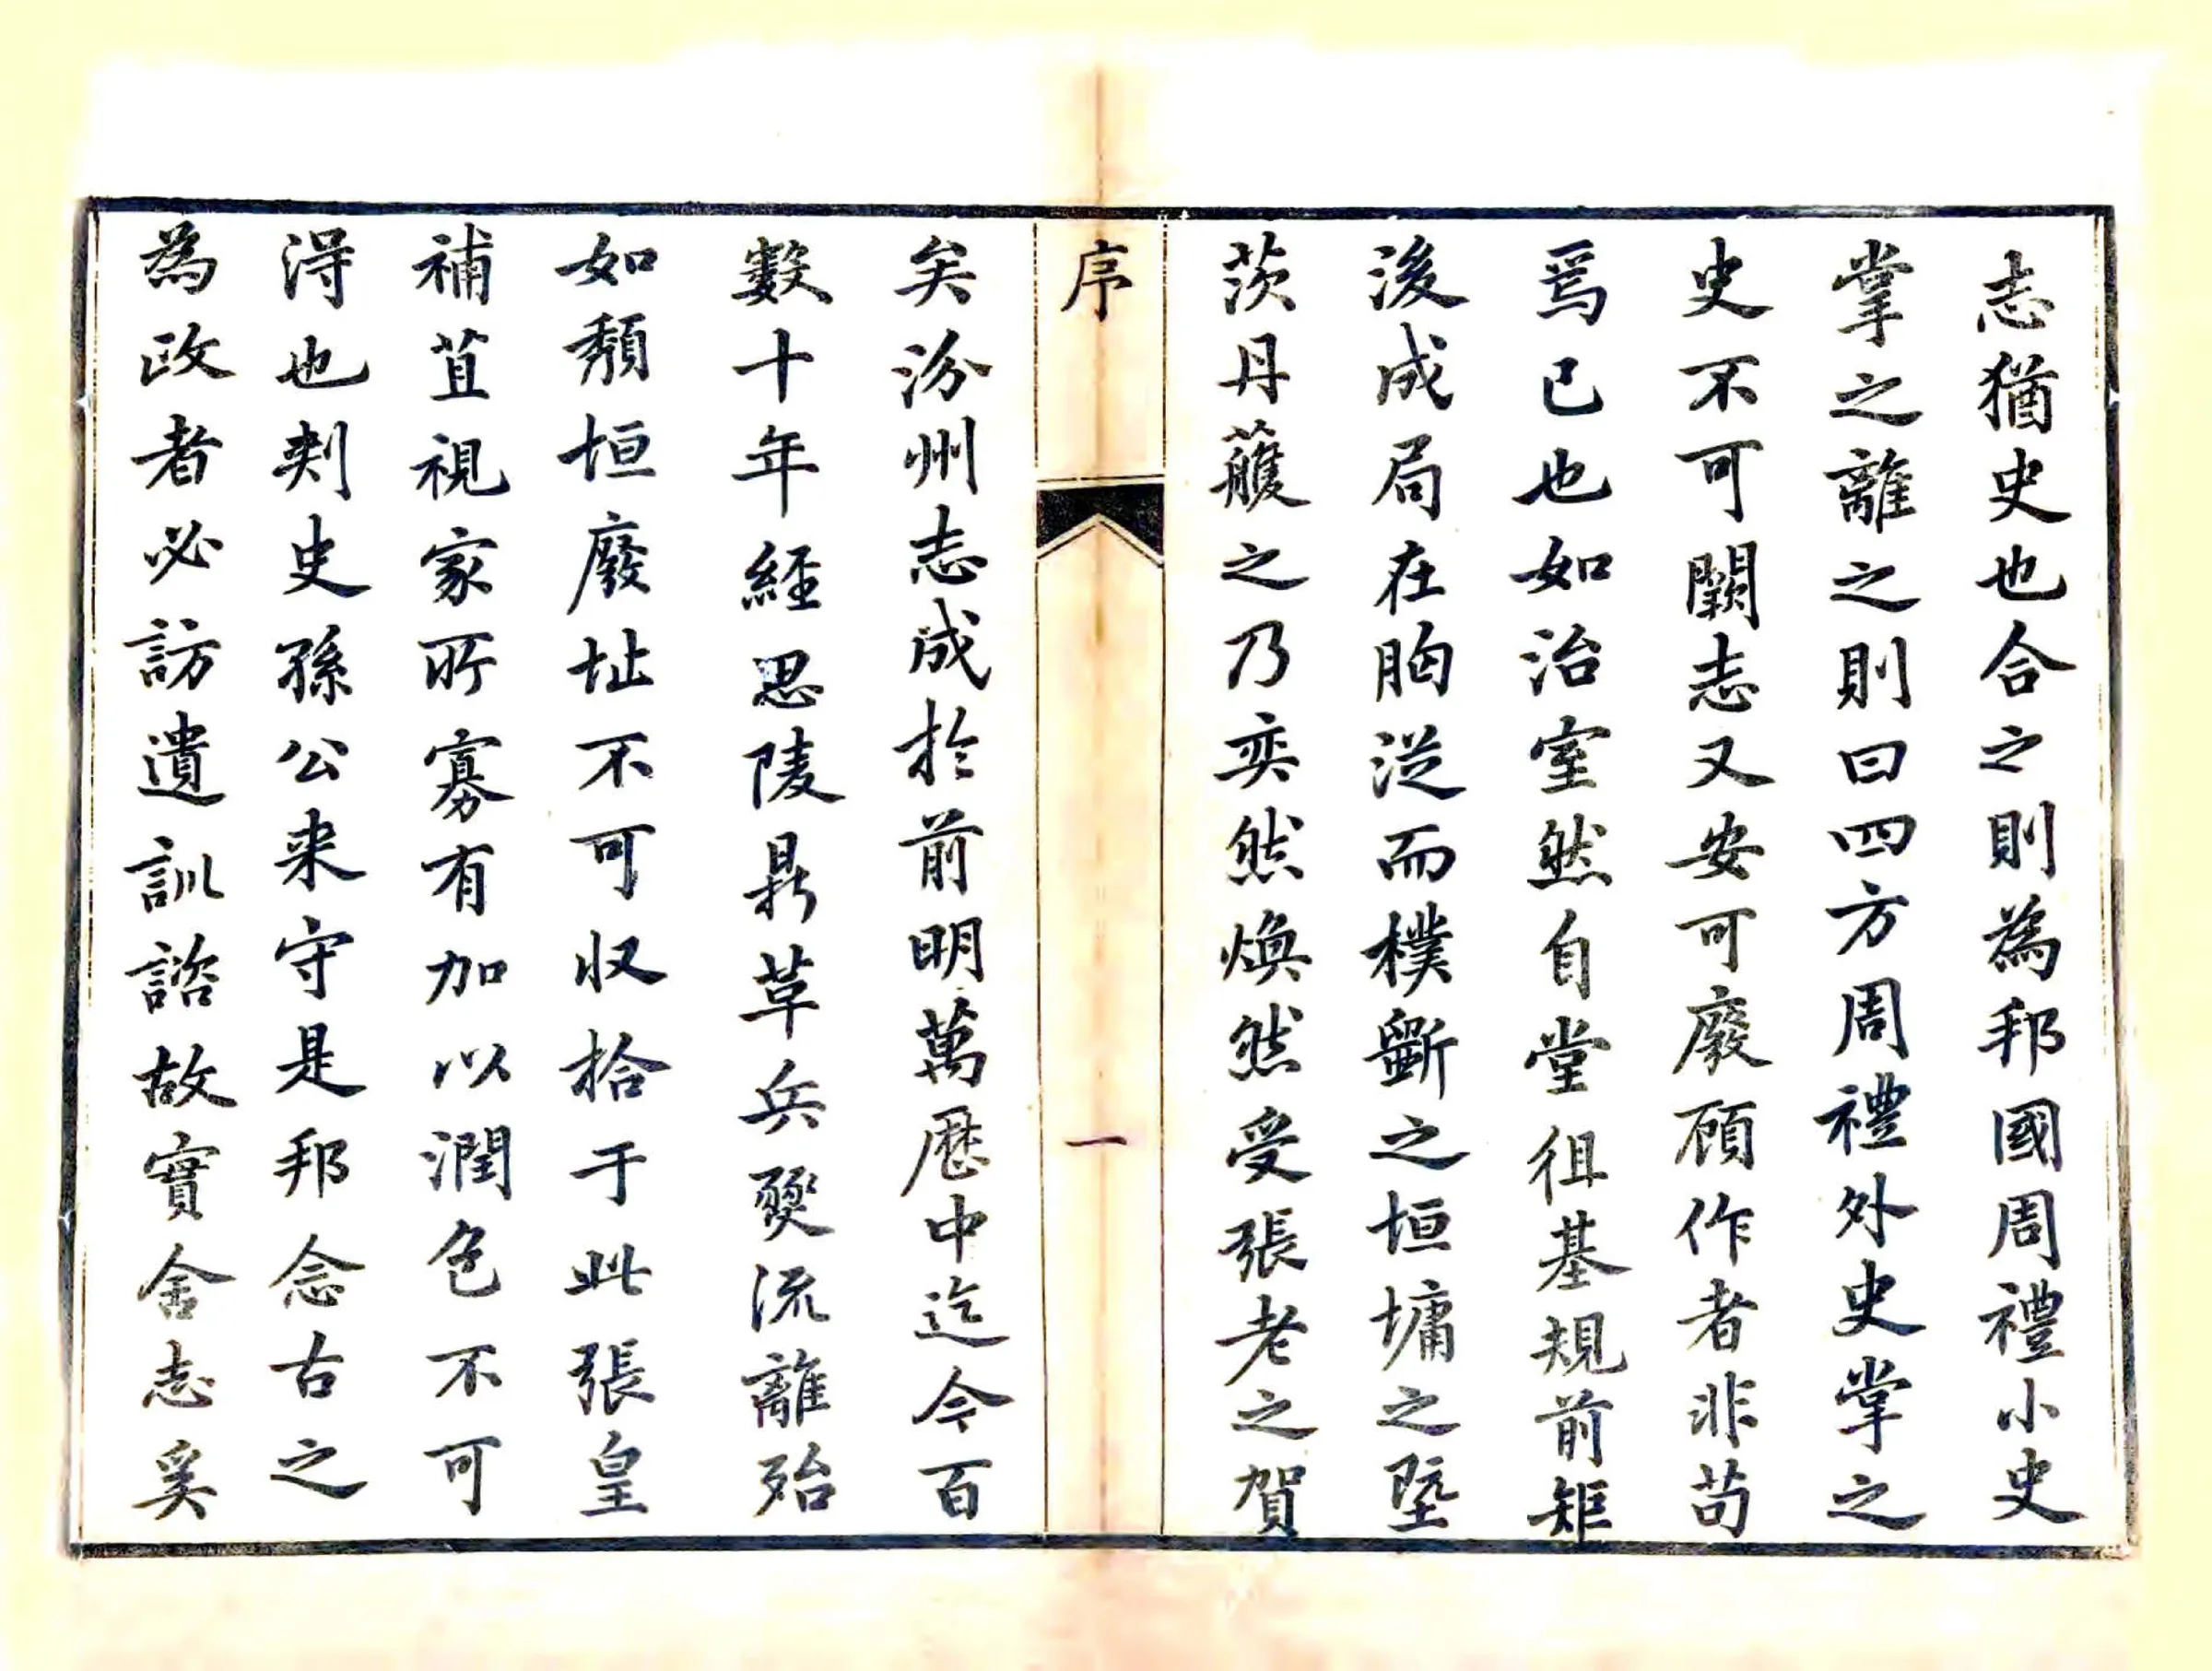 志猶史也合之則為邦國周禮小史
掌之離之則曰四方周禮外史掌之
史不可闕志又安可廢顧作者非苟
焉已也如治室然自堂徂基規前矩
後成局在胸従而樸斵之垣墉之墍
茨丹雘之乃奕然煥然受張老之賀
序
一
矣汾州志成於前明萬歷中迄今百
數十年經思陵鼎革兵燹流離殆
如頹垣廢址不可収拾于此張皇
補苴視家所寡有加以潤色不可
淂也刺史孫公来守是邦念古之
為政者必訪遺訓諮故實舍志奚